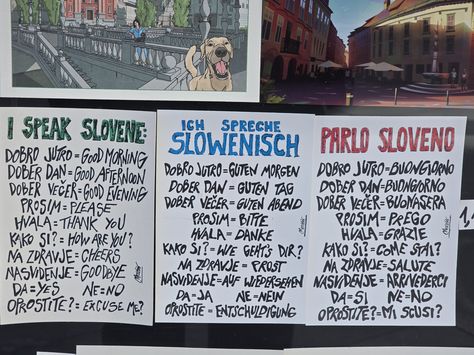 I SPEAK SLOVENE:
DOBRO JUTRO = GOOD MORNING
DOBER DAN = GOOD AFTERNOON
DOBER VEČER = GOOD EVENING
PROSIM = PLEASE
HVALA = THANK YOU
KAKO SI? = HOW ARE YOU?
NA ZDRAVJE = CHEERS
NASVIDENJE = GOODBYE
DA = YES NE = NO
OPROSTITE? = EXCUSE ME?
ICH SPRECHE
SLOWENISCH
DOBRO JUTRO = GUTEN MORGEN
DOBER DAN = GUTEN TAG
DOBER VEČER = GUTEN ABEND
PROSIM = BITTE
HVALA = DANKE
KAKO SI? = WIE GEHT'S DIR?
NA ZDRAVJE = PROST
NASVIDENJE = AUF WIEDERSEHEN
DA = JA NE = NEIN
OPROSTITE = ENTSCHULDIGUNG
PARLO SLOVENO
DOBRO JUTRO = BUONGIORNO
DOBER DAN = BUONGIORNO
DOBER VEČER = BUONASERA
PROSIM = PREGO
HVALA = GRAZIE
KAKO SI? = COME STAI?
NA ZDRAVJE = SALUTE
NASVIDENJE = ARRIVEDERCI
DA = SI NE = NO
OPROSTITE? = MI SCUSI?